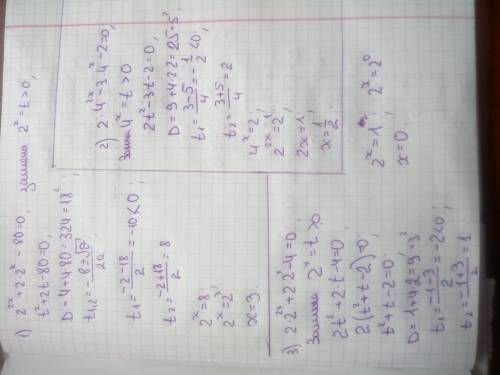 1) 2²ˣ + 2·2ˣ - 80 = 0. Замена 2ˣ = t > 0,
t² + 2t - 80 = 0,
D = 4 + 4·80 = 324 = 18²
t₁ = (-2-18)/2 = -10 < 0;
t₂ = (-2+18)/2 = 8
2ˣ = 8;
2ˣ = 2³
x = 3.
2) 2·4²ˣ - 3·4ˣ - 2 = 0,
Замена 4ˣ = t > 0
2t² - 3t - 2 = 0,
D = 9 + 4·2·2 = 25 = 5²
t₁ = (3-5)/4 = -1/2 < 0;
t₂ = (3+5)/4 = 2
4ˣ = 2;
2²ˣ = 2¹;
2x = 1;
x = 1/2
3) 2·2²ˣ + 2·2ˣ - 4 = 0,
Замена 2ˣ = t >
2t² + 2t - 4 = 0
2(t² + t - 2) = 0;
t² + t - 2 = 0.
D = 1 + 4·2 = 9 = 3²
t₁ = (-1-3)/2 = -2 < 0;
t₂ = (-1+3)/2 = 1
2ˣ = 1; 2ˣ = 2⁰
x = 0.